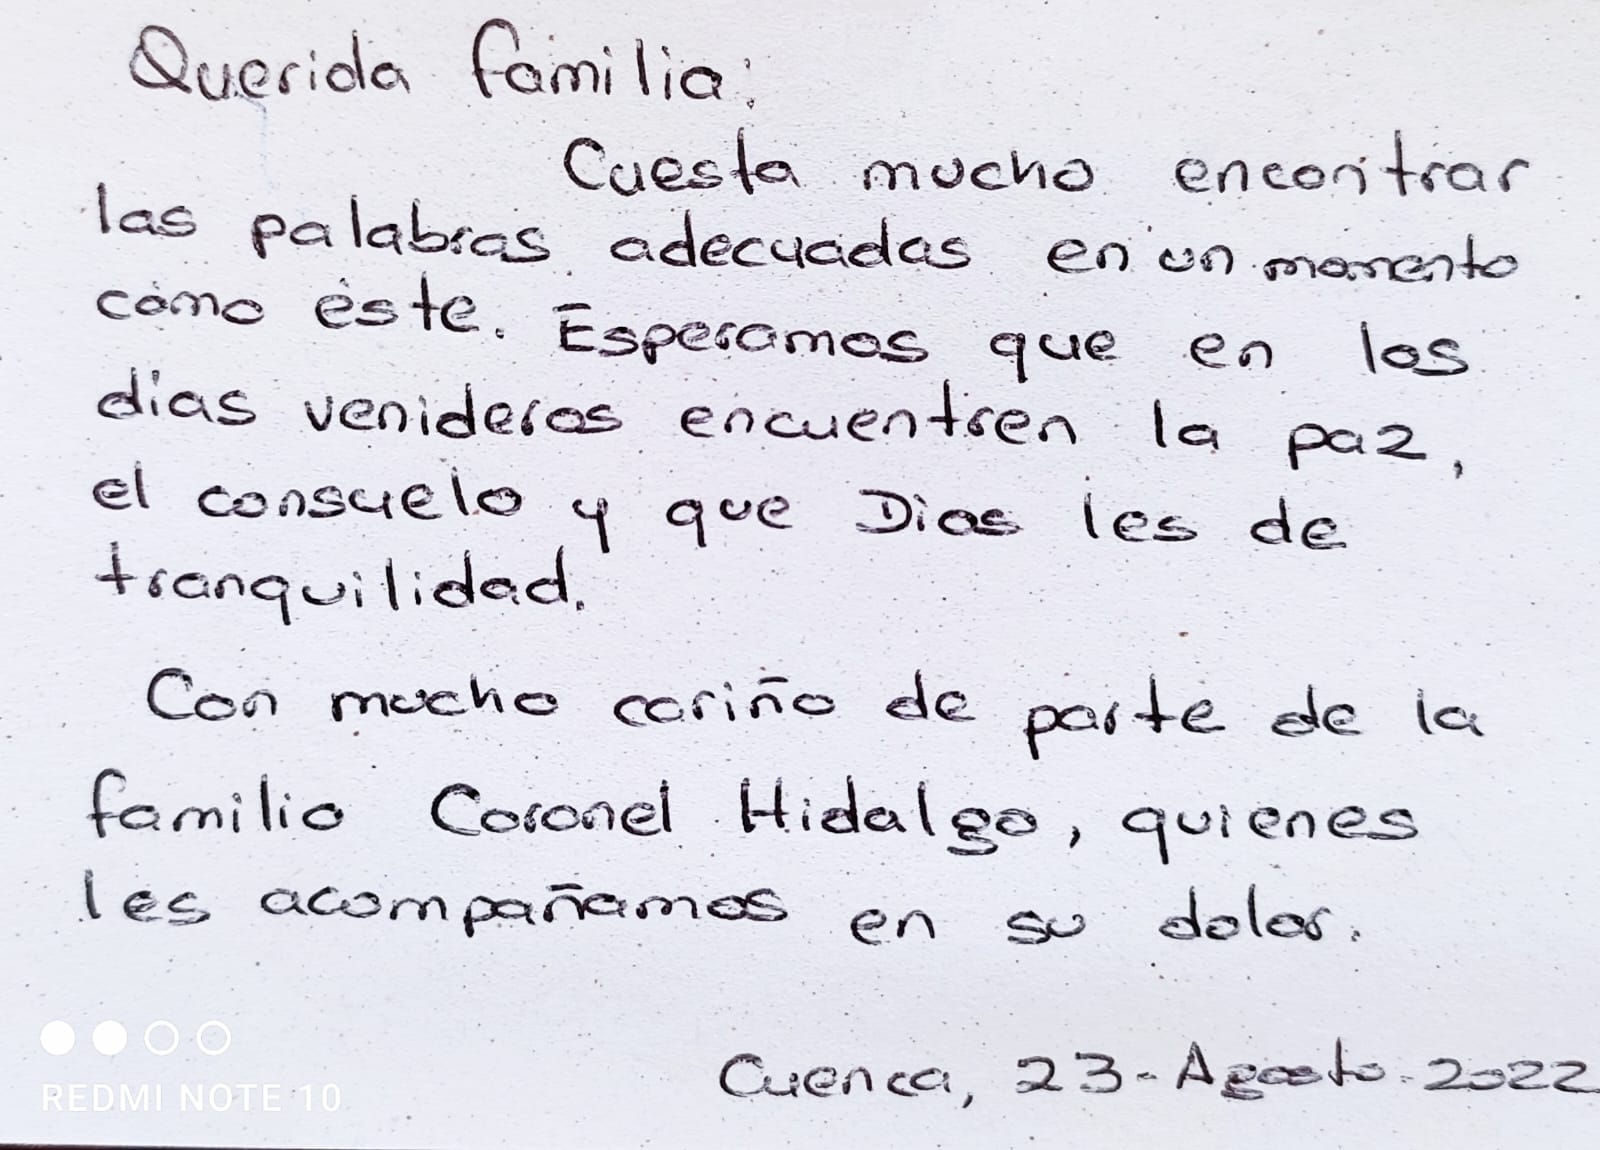 Querida familia:
Cuesta mucho encontrar
las palabras adecuadas en un momento
como éste. Esperamos que en los
días venideros encuentren la paz,
el consuelo y que Dios les de
tranquilidad.
Con mucho cariño de parte de la
familia Coronel Hidalgo, quienes
les acompañamos en su dolor.
Cuenca, 23-Agosto-2022
REDMI NOTE 10